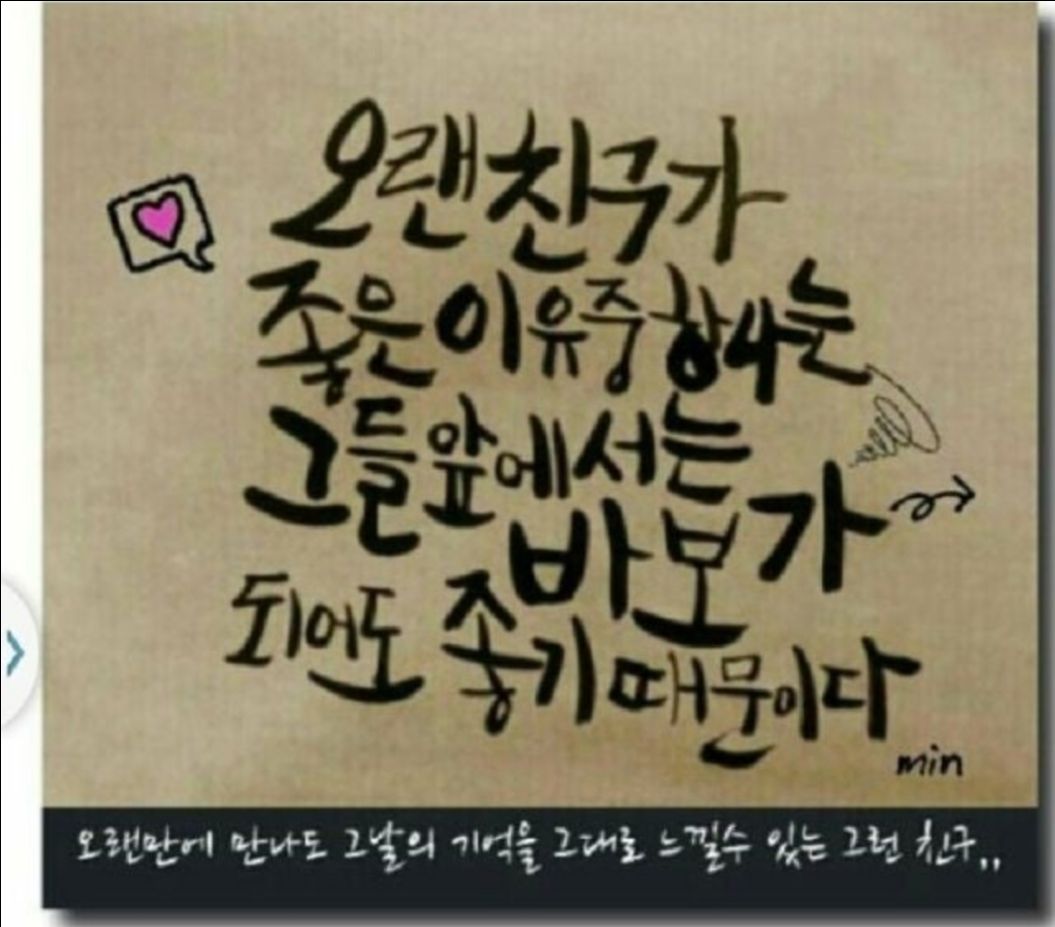 오랜 친구가
좋은 이유 중 하나는
그들 앞에서는
바보가
되어도 좋기 때문이다
min
오랜만에 만나도 그날의 기억을 그대로 느낄수 있는 그런 친구,,